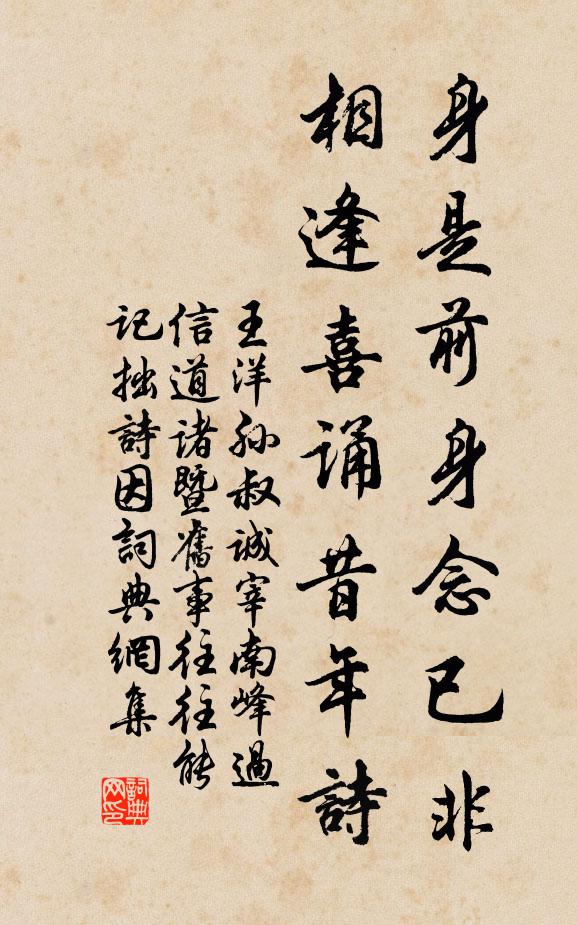 身是前身念已非
相逢喜诵昔年詩
王洋孙叔诚宰南峰過
信道诸暨舊事往往能
记拙詩因詞典網集
詞典网印